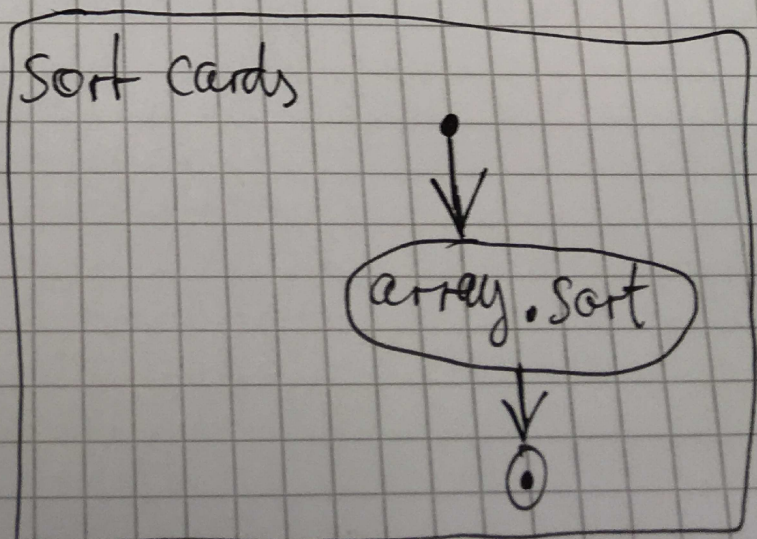 Sort Cards
array.sort